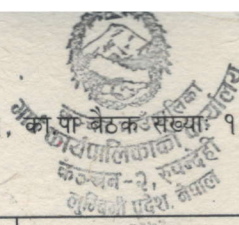 का.पा बैठक संख्याः १
गाउँ कार्यपालिकाको कार्यालय
कञ्चन-२, रुपन्देही
लुम्बिनी प्रदेश, नेपाल